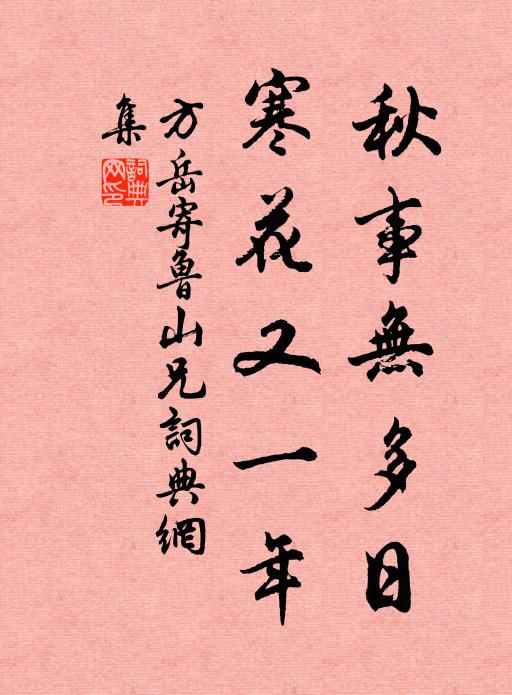 秋事無多日
寒花又一年
方岳寄魯山兄詞典網
集
詞典
网印